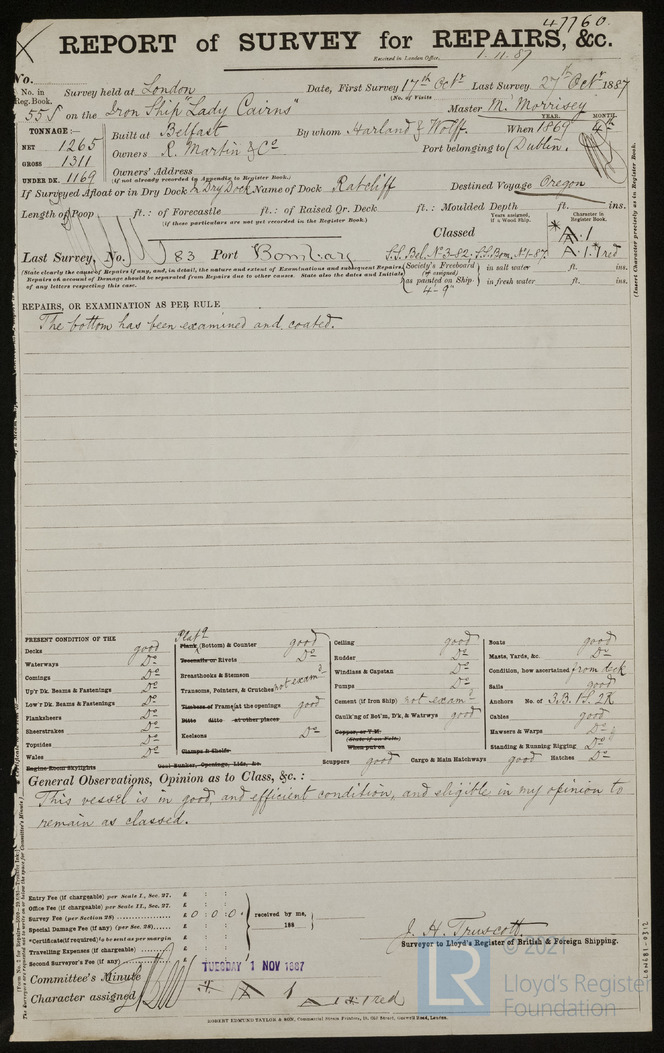 47760.
REPORT of SURVEY for REPAIRS, &c.
Received in London Office, 1.11.87
No.
No. in Reg. Book. Survey held at London Date, First Survey 17th Octr Last Survey 27th Octr 1887
(No. of Visits
558 on the Iron Ship "Lady Cairns" Master M. Morrisey
TONNAGE:— YEAR. MONTH.
NET 1265 Built at Belfast By whom Harland & Wolff. When 1869 4th
GROSS 1311 Owners R. Martin & Co Port belonging to Dublin.
UNDER DK. 1169 Owners' Address
(if not already recorded in Appendix to Register Book.)
If Surveyed Afloat or in Dry Dock In Dry Dock Name of Dock Ratcliff Destined Voyage Oregon
Length of Poop ft.: of Forecastle ft.: of Raised Qr. Deck ft.: Moulded Depth ft. ins.
(If these particulars are not yet recorded in the Register Book.)
Years assigned, if a Wood Ship. Character in Register Book.
Classed * A.1
Last Survey, No. 83 Port Bombay S.S. Bel. No 3-82; S.S. Bom. No 1-87. A.1. * red
(State clearly the cause of Repairs if any, and, in detail, the nature and extent of Examinations and subsequent Repairs.
Repairs on account of Damage should be separated from Repairs due to other causes State also the dates and Initials
of any letters respecting this case.
Society's Freeboard (if assigned) as painted on Ship. 4-9" in salt water ft. ins.
in fresh water ft. ins.
(Insert Character precisely as in Register Book.
REPAIRS, OR EXAMINATION AS PER RULE
The bottom has been examined and coated.
PRESENT CONDITION OF THE
Decks good
Waterways Do
Comings Do
Up'r Dk. Beams & Fastenings Do
Low'r Dk. Beams & Fastenings Do
Planksheers Do
Sheerstrakes Do
Topsides Do
Wales Do
Engine Room Skylights
Platg
Plank (Bottom) & Counter good
Treenails or Rivets Do
Breasthooks & Stemson
Transoms, Pointers, & Crutches not examd
Timbers of Frame at the openings good
Ditto ditto at other places
Keelsons Do
Clamps & Shelfs
Coal Bunker, Openings, Lids, &c.
Ceiling good
Rudder Do
Windlass & Capstan Do
Pumps Do
Cement (if Iron Ship) not examd
Caulk'ng of Bot'm, D'k, & Watrwys good
Copper, or Y.M.
(State if on Felt.)
When put on
Boats good
Masts, Yards, &c. Do
Condition, how ascertained from deck
Sails good
Anchors No. of 3.B. 1S. 2K
Cables good
Hawsers & Warps Do
Standing & Running Rigging Do
Scuppers good Cargo & Main Hatchways good Hatches Do
General Observations, Opinion as to Class, &c. :
This vessel is in good and efficient condition, and eligible in my opinion to
remain as classed.
Entry Fee (if chargeable) per Scale I., Sec. 27. £ : :
Office Fee (if chargeable) per Scale II., Sec. 27. £ : :
Survey Fee (per Section 28) £ 0 : 0 : 0. received by me,
Special Damage Fee (if any) (per Sec. 28) £ : : 188
*Certificate (if required) to be sent as per margin
Travelling Expenses (if chargeable) £ : :
Second Surveyor's Fee (if any) £ : :
J. H. Truscott.
Surveyor to Lloyd's Register of British & Foreign Shipping.
Committee's Minute TUESDAY 1 NOV 1887
Character assigned * A 1 A 1 * red
ROBERT EDMUND TAYLOR & SON, Commercial Steam Printers, 19, Old Street, Goswell Road, London.
LON681-0312
© 2021
LR
Lloyd's Register
Foundation